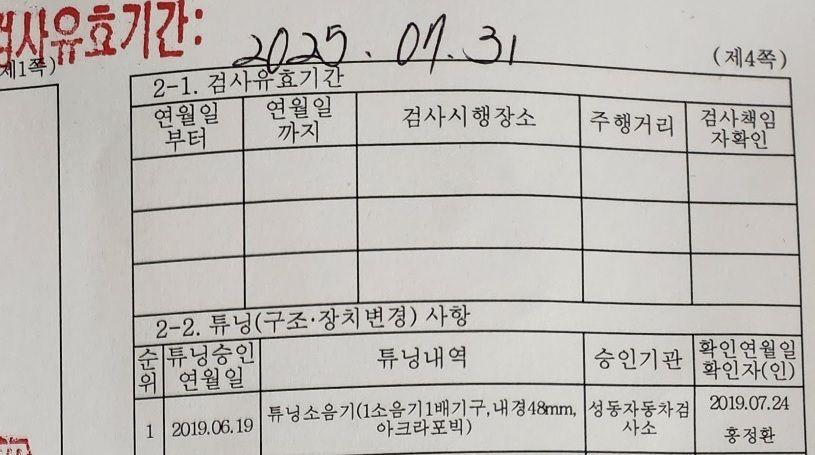 검사유효기간: 2025.07.31
제1쪽)
(제4쪽)
2-1. 검사유효기간
연월일 부터 연월일 까지 검사시행장소 주행거리 검사책임 자확인
2-2. 튜닝(구조·장치변경) 사항
순위 튜닝승인 연월일 튜닝내역 승인기관 확인연월일 확인자(인)
1 2019.06.19 튜닝소음기(1소음기1배기구,내경48mm, 아크라포빅) 성동자동차검사소 2019.07.24 홍정환